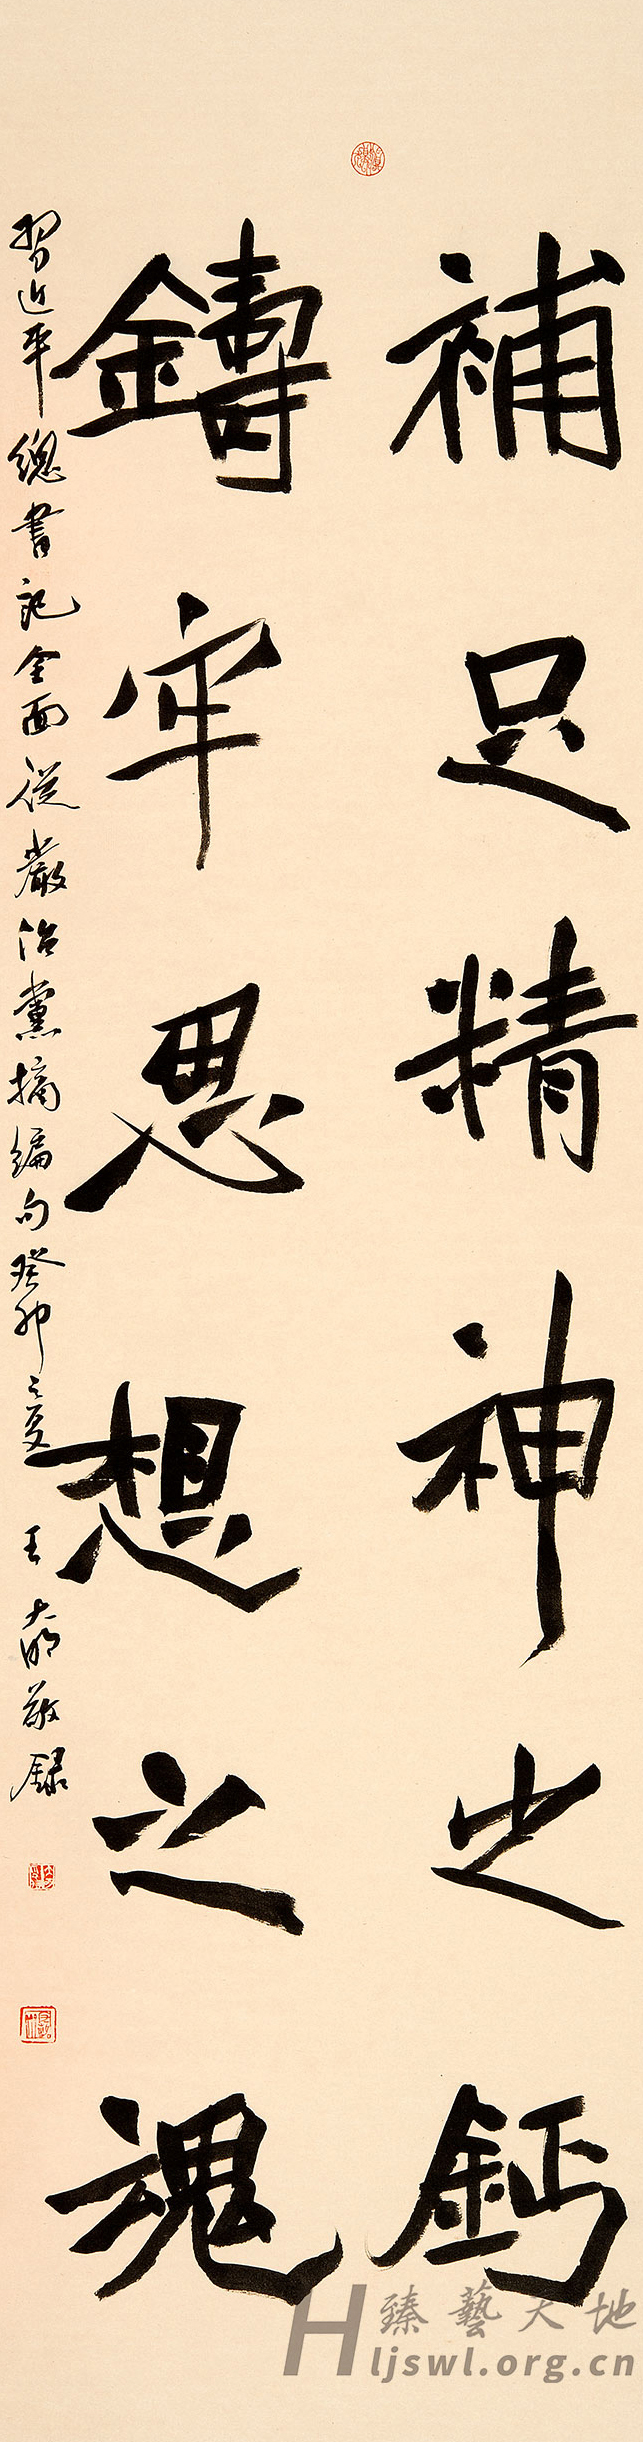 補足精神之鈣
鑄牢思想之魂
習近平總書記全面從嚴治黨摘編句癸卯之夏 王大明敬録
臻藝大地
ljswl.org.cn